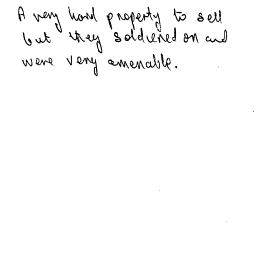 A very hard property to sell
but they soldiered on and
were very amenable.